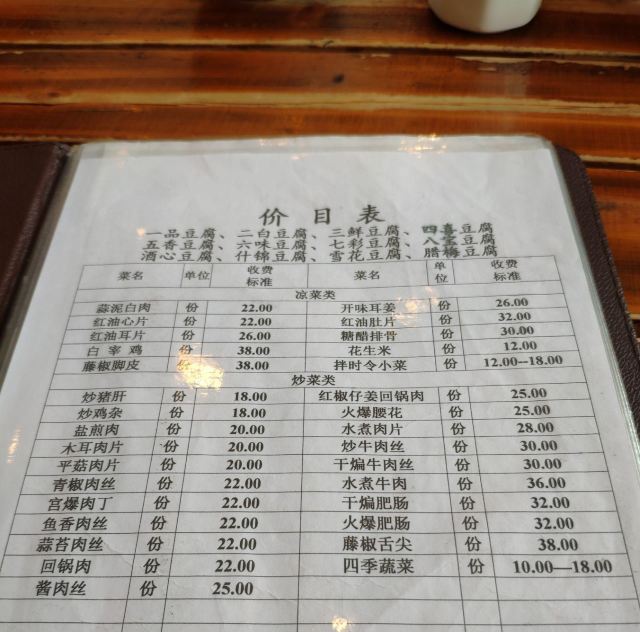 价目表
一品豆腐、二白豆腐、三鲜豆腐、四喜豆腐
五香豆腐、六味豆腐、七彩豆腐、八宝豆腐
酒心豆腐、什锦豆腐、雪花豆腐、腊梅豆腐
菜名 单位 收费标准 菜名 单位 收费标准
凉菜类
蒜泥白肉 份 22.00 开味耳姜 份 26.00
红油心片 份 22.00 红油肚片 份 32.00
红油耳片 份 26.00 糖醋排骨 份 30.00
白宰鸡 份 38.00 花生米 份 12.00
藤椒脚皮 份 38.00 拌时令小菜 份 12.00--18.00
炒菜类
炒猪肝 份 18.00 红椒仔姜回锅肉 份 25.00
炒鸡杂 份 18.00 火爆腰花 份 25.00
盐煎肉 份 20.00 水煮肉片 份 28.00
木耳肉片 份 20.00 炒牛肉丝 份 30.00
平菇肉片 份 20.00 干煸牛肉丝 份 30.00
青椒肉丝 份 22.00 水煮牛肉 份 36.00
宫爆肉丁 份 22.00 干煸肥肠 份 32.00
鱼香肉丝 份 22.00 火爆肥肠 份 32.00
蒜苔肉丝 份 22.00 藤椒舌尖 份 38.00
回锅肉 份 22.00 四季蔬菜 份 10.00—18.00
酱肉丝 份 25.00